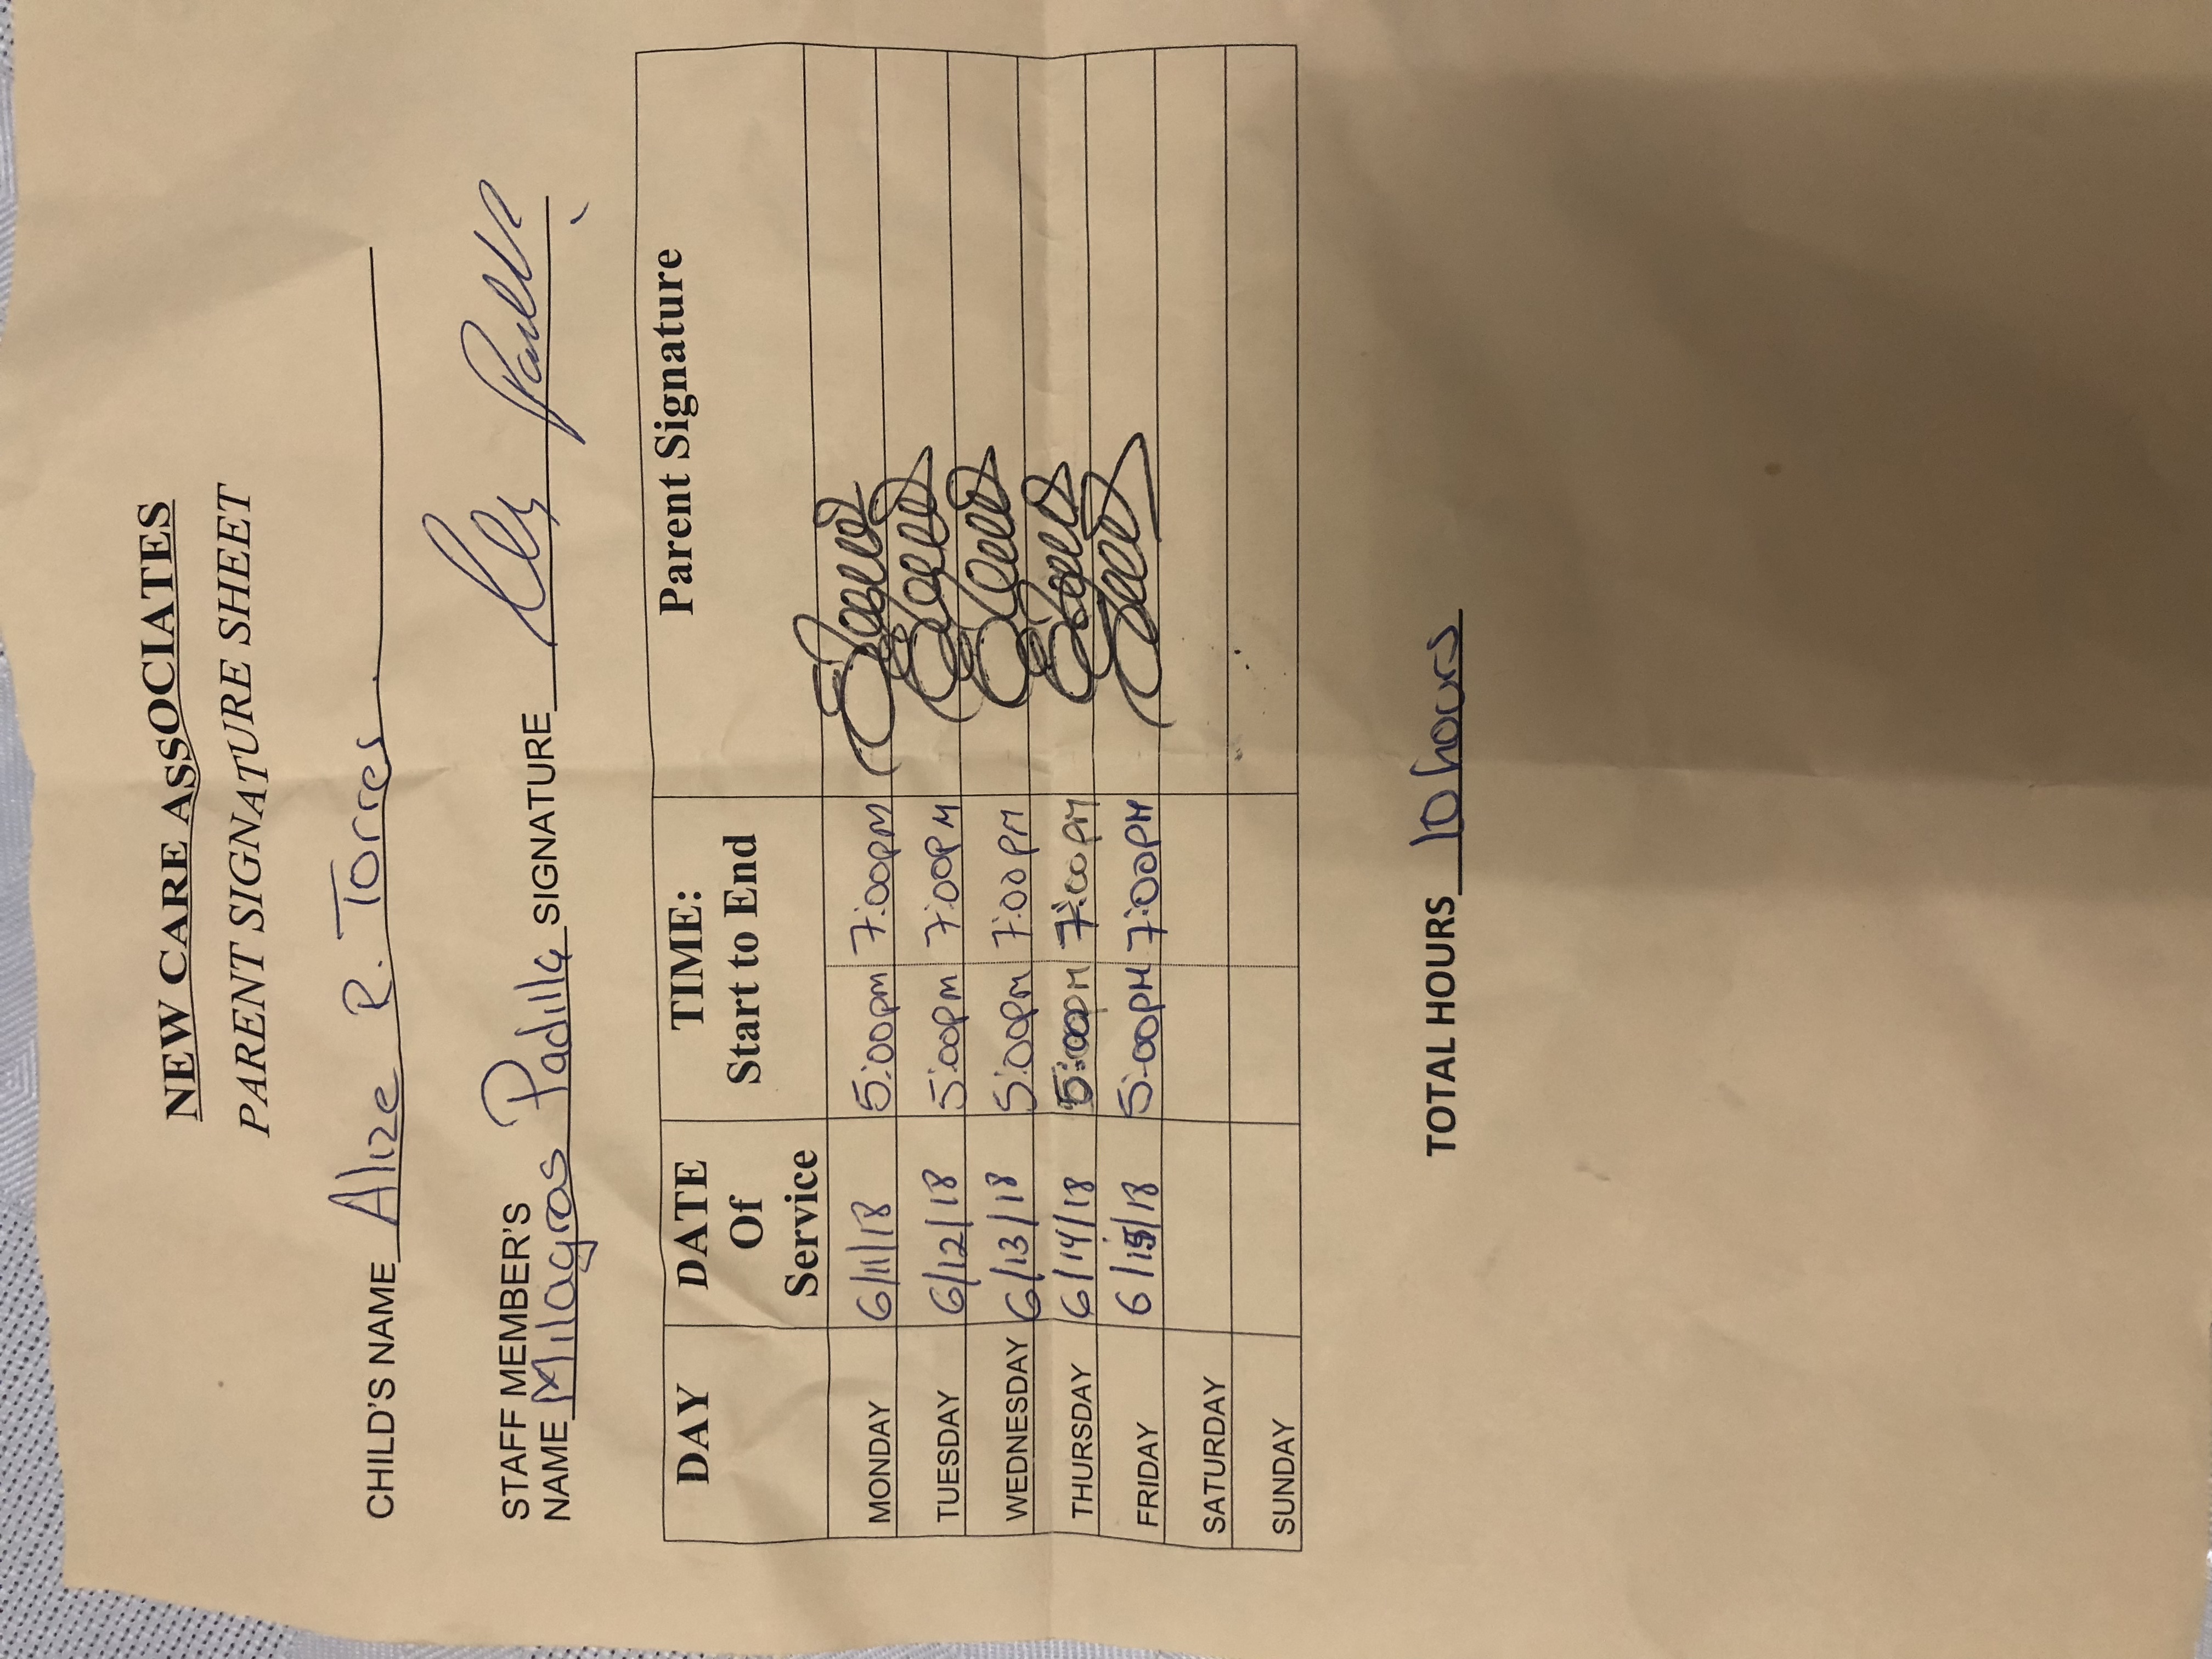 NEW CARE ASSOCIATES
PARENT SIGNATURE SHEET
CHILD'S NAME Alize R. Torres
STAFF MEMBER'S
NAME Milagros Padilla SIGNATURE
DAY DATE Of Service TIME: Start to End Parent Signature
MONDAY 6/11/18 5:00pm 7:00pm
TUESDAY 6/12/18 5:00pm 7:00PM
WEDNESDAY 6/13/18 5:00pm 7:00PM
THURSDAY 6/14/18 5:00pm 7:00pm
FRIDAY 6/15/18 5:00PM 7:00PM
SATURDAY
SUNDAY
TOTAL HOURS 10 hours